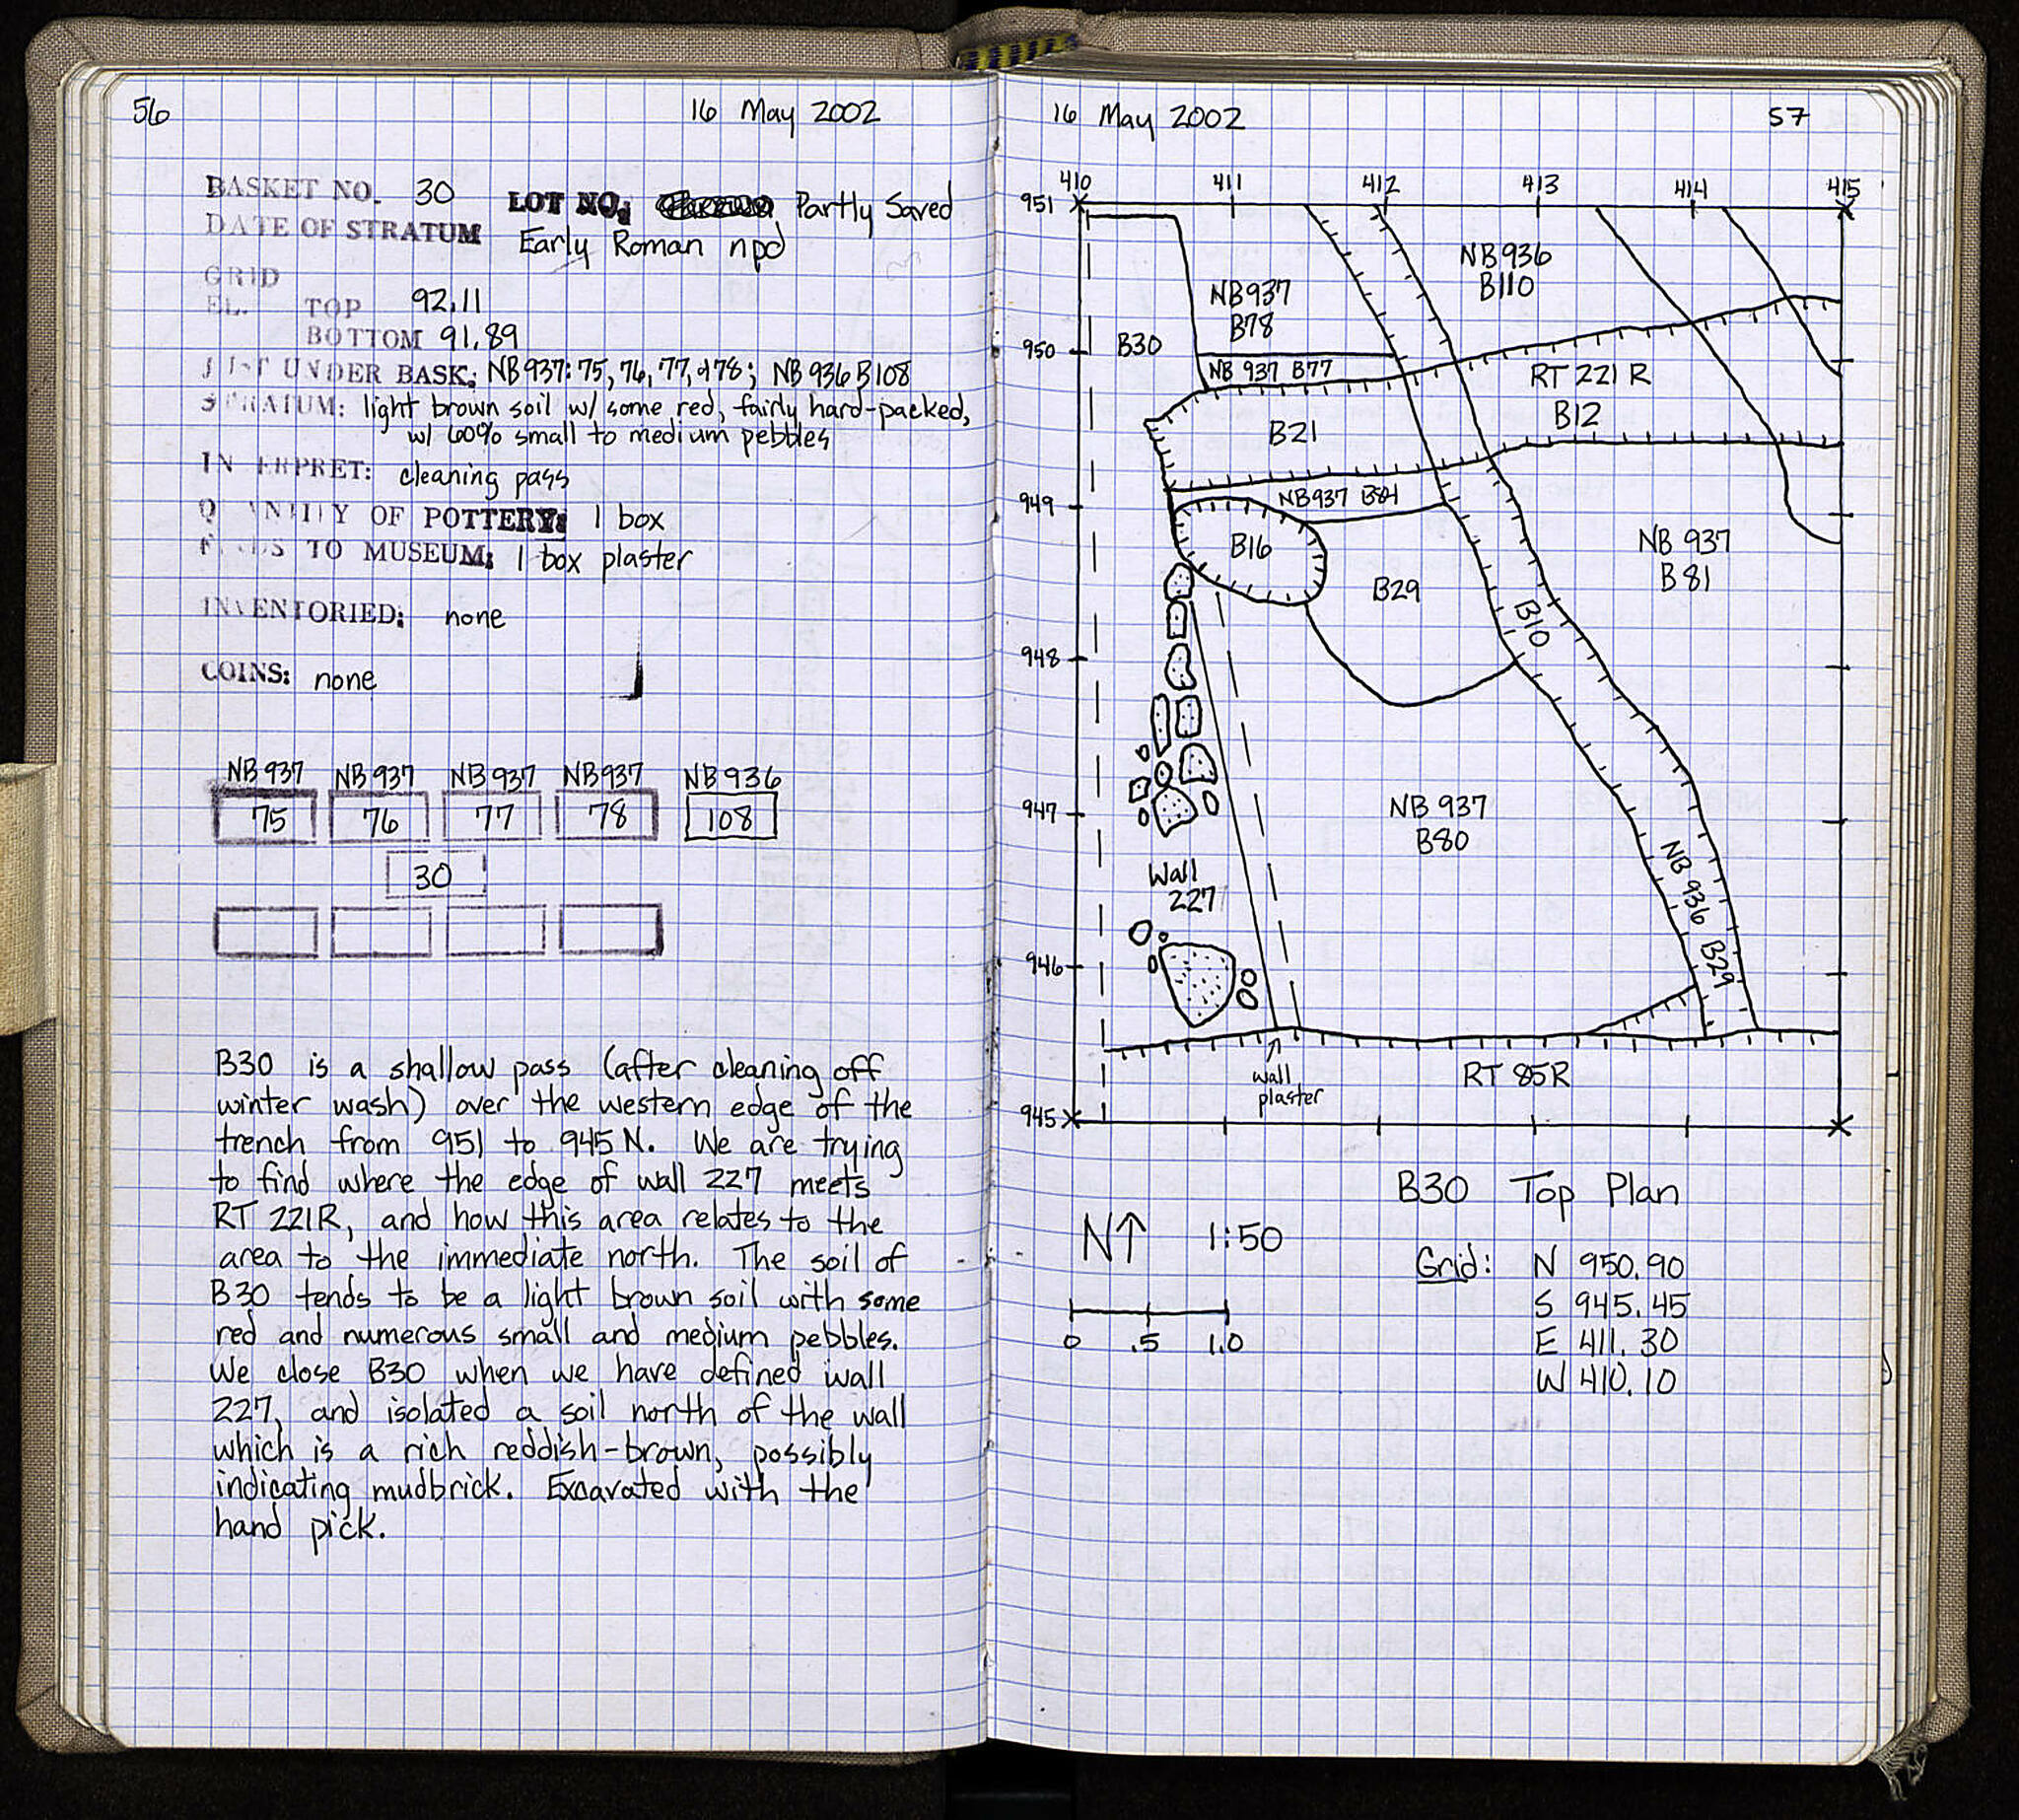 56
16 May 2002
BASKET NO. 30 LOT NO. Partly Saved
DATE OF STRATUM Early Roman npd
GRID
EL. TOP 92.11
BOTTOM 91.89
JUST UNDER BASK: NB 937: 75, 76, 77, + 78; NB 936 B108
STRATUM: light brown soil w/ some red, fairly hard-packed,
w/ 60% small to medium pebbles
INTERPRET: cleaning pass
QUANTITY OF POTTERY: 1 box
FINDS TO MUSEUM: 1 box plaster
INVENTORIED: none
COINS: none
NB 937 NB 937 NB 937 NB 937 NB 936
75 76 77 78 108
30
B30 is a shallow pass (after cleaning off
winter wash) over the western edge of the
trench from 951 to 945 N. We are trying
to find where the edge of wall 227 meets
RT 221R, and how this area relates to the
area to the immediate north. The soil of
B30 tends to be a light brown soil with some
red and numerous small and medium pebbles.
We close B30 when we have defined wall
227, and isolated a soil north of the wall
which is a rich reddish-brown, possibly
indicating mudbrick. Excavated with the
hand pick.
16 May 2002
57
410 411 412 413 414 415
951
NB 936
B110
NB 937
B78
950
B30
NB 937 B77
RT 221 R
B12
B21
949
NB 937 B84
B16
NB 937
B81
B29
B10
948
947
NB 937
B80
Wall
227
NB 936 B29
946
wall
plaster
RT 85R
945
B30 Top Plan
N↑ 1:50
Grid: N 950.90
S 945.45
E 411.30
W 410.10
0 .5 1.0